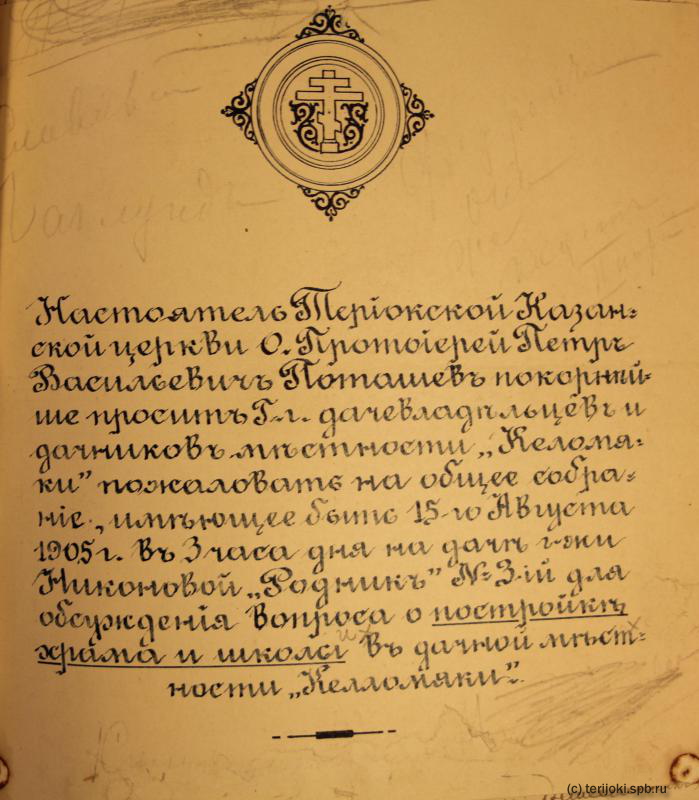 Настоятель Теріокской Казан-
ской церкви О. Протоіерей Петръ
Васильевичъ Поташевъ покорнѣй-
ше проситъ Г.г. дачевладѣльцевъ и
дачниковъ мѣстности „Келомя-
ки" пожаловать на общее собра-
ніе, имѣющее быть 15-го Августа
1905 г. въ 3 часа дня на дачѣ г-жи
Никоновой „Родникъ" № 3-ій для
обсужденія вопроса о постройкѣ
храма и школы въ дачной мѣст-
ности „Келломяки".
(c) terijoki.spb.ru